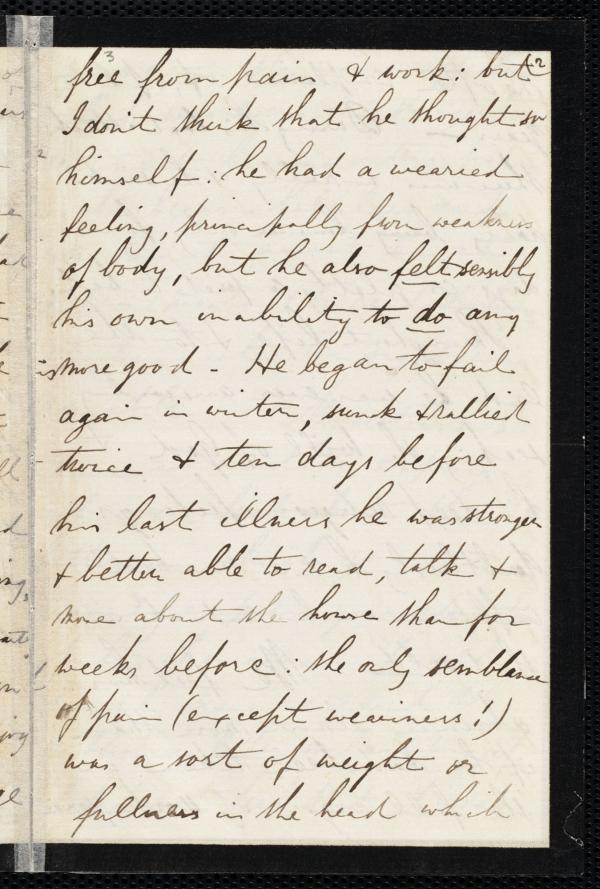 3
2
free from pain & work: but
I don't think that he thought so
himself: he had a wearied
feeling, principally from weakness
of body, but he also felt sensibly
his own inability to do any
more good - He began to fail
again in winter, sunk & rallied
twice & ten days before
his last illness he was stronger
& better able to read, talk &
move about the house than for
weeks before: the only semblance
of pain (except weariness!)
was a sort of weight or
fullness in the head which